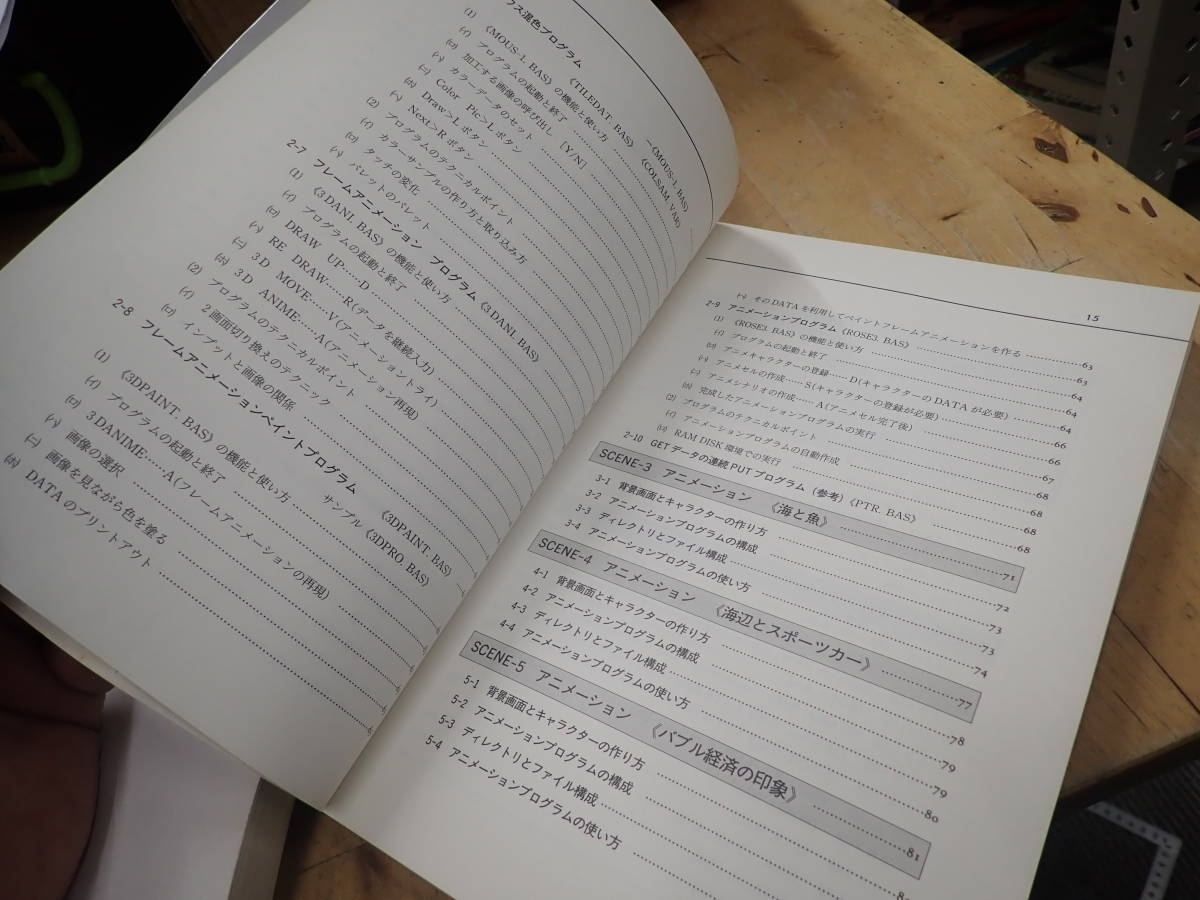 ウス混色プログラム 《TILEDAT. BAS》 《COLSAM. VAR》
(1) 《MOUS-1. BAS》の機能と使い方 《MOUS-1. BAS》
(ｲ) プログラムの起動と終了
(ﾛ) 加工する画像の呼び出し [Y/N]
(ﾊ) カラーデータのセット
(ﾆ) Color Pic>Lボタン
(ﾎ) Draw>Lボタン
(ﾍ) Next>Rボタン
(2) プログラムのテクニカルポイント
(ｲ) カラーサンプルの作り方と取り込み方
(ﾛ) タッチの変化
(ﾊ) パレットのパレット
2-7 フレームアニメーション プログラム《3DANI. BAS》
(1) 《3DANI. BAS》の機能と使い方
(ｲ) プログラムの起動と終了
(ﾛ) DRAW UP……D
(ﾊ) RE DRAW……R(データを継続入力)
(ﾆ) 3D MOVE……V(アニメーショントライ)
(ﾎ) 3D ANIME……A(アニメーション再現)
(2) プログラムのテクニカルポイント
(ｲ) 2画面切り換えのテクニック
(ﾛ) インプットと画像の関係
2-8 フレームアニメーションペイントプログラム 《3DPAINT. BAS》
サンプル《3DPRO. BAS》
(1) 《3DPAINT. BAS》の機能と使い方
(ｲ) プログラムの起動と終了
(ﾛ) 3DANIME……A(フレームアニメーションの再現)
(ﾊ) 画像の選択
(ﾆ) 画像を見ながら色を塗る
(ﾎ) DATAのプリントアウト
15
(ﾍ) そのDATAを利用してペイントフレームアニメーションを作る 63
2-9 アニメーションプログラム《ROSE3. BAS》 63
(1) 《ROSE3. BAS》の機能と使い方 64
(ｲ) プログラムの起動と終了 64
(ﾛ) アニメキャラクターの登録……D(キャラクターのDATAが必要) 64
(ﾊ) アニメセルの作成……S(キャラクターの登録が必要) 66
(ﾆ) アニメシナリオの作成……A(アニメセル完了後) 66
(ﾎ) 完成したアニメーションプログラムの実行 67
(2) プログラムのテクニカルポイント 68
(ｲ) アニメーションプログラムの自動作成 68
(ﾛ) RAM DISK環境での実行 68
2-10 GETデータの連続PUTプログラム (参考)《PTR. BAS》
SCENE-3 アニメーション 《海と魚》 71
3-1 背景画面とキャラクターの作り方 72
3-2 アニメーションプログラムの構成 73
3-3 ディレクトリとファイル構成 73
3-4 アニメーションプログラムの使い方 74
SCENE-4 アニメーション 《海辺とスポーツカー》 77
4-1 背景画面とキャラクターの作り方 78
4-2 アニメーションプログラムの構成 79
4-3 ディレクトリとファイル構成 79
4-4 アニメーションプログラムの使い方 80
SCENE-5 アニメーション 《バブル経済の印象》 81
5-1 背景画面とキャラクターの作り方
5-2 アニメーションプログラムの構成
5-3 ディレクトリとファイル構成
5-4 アニメーションプログラムの使い方